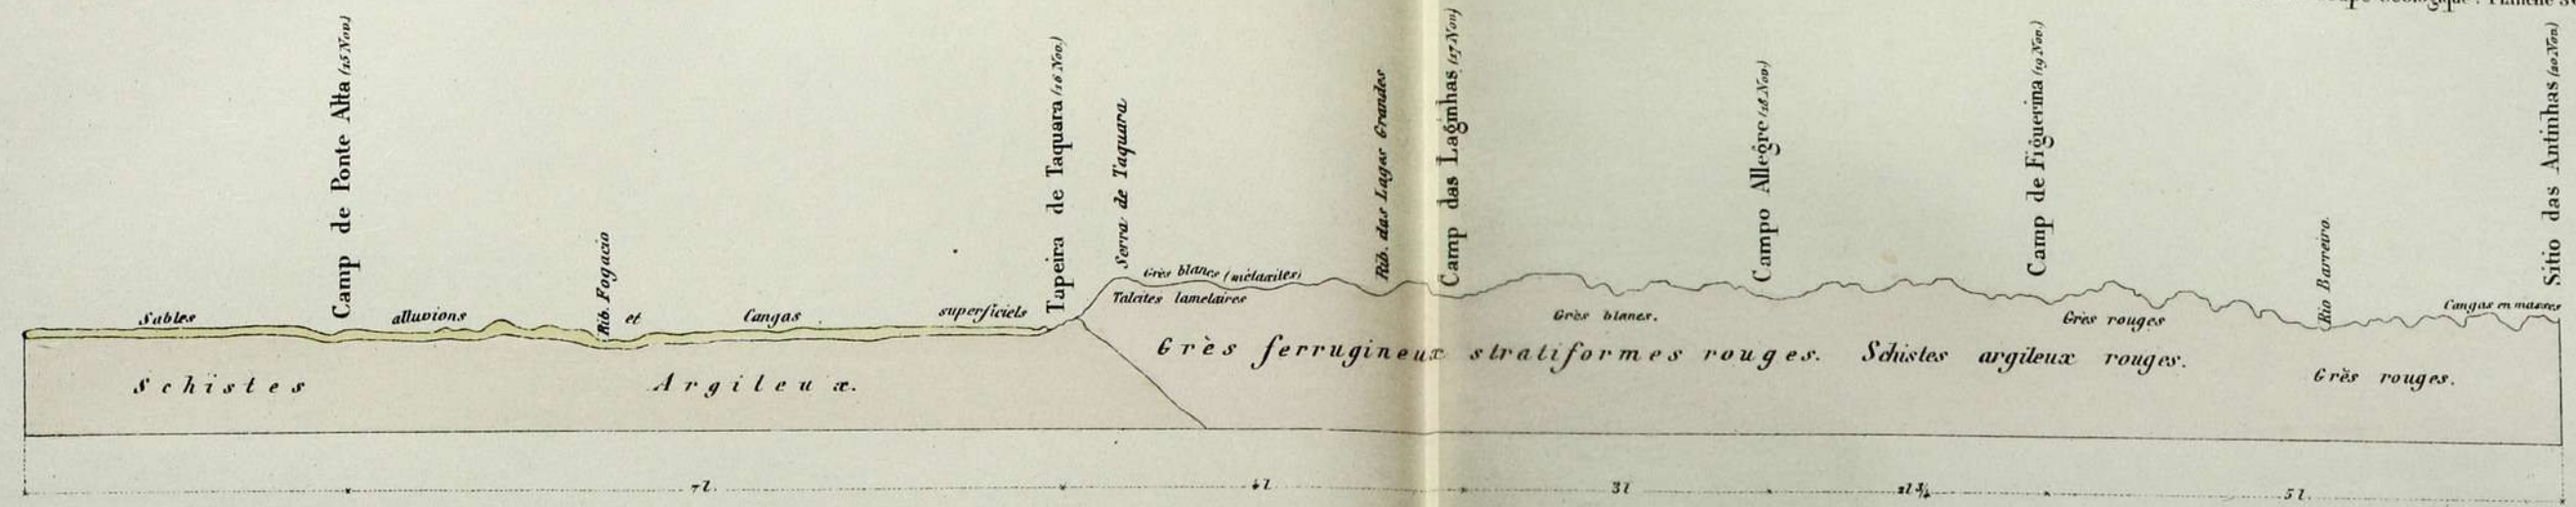 Camp de Ponte Alta (15 Nov.)
Rib. Fogacio
Tapeira de Taquara (16 Nov.)
Serra de Taquara
Rib. das Lagas Grandes
Camp das Laginhas (17 Nov)
Campo Allegre (18 Nov.)
Camp de Figuerina (19 Nov.)
Rio Barreiro.
Sitio das Antinhas (20 Nov)
Sables alluvions et Cangas superficiels
Grès blancs (métaxites)
Talcites lamelaires
Grès blancs.
Grès rouges
Cangas en masses
Schistes Argileux.
Grès ferrugineux stratiformes rouges. Schistes argileux rouges.
Grès rouges.
7 l. 4 l 3 l 2 l ¾ 5 l.